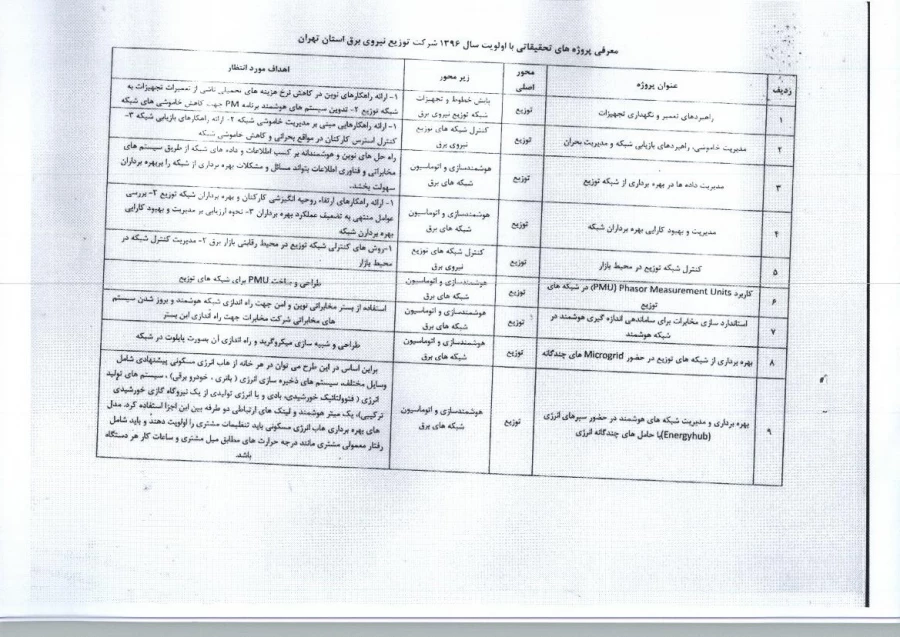 معرفی پروژه های تحقیقاتی با اولویت سال ۱۳۹۶ شرکت توزیع نیروی برق استان تهران
ردیف
عنوان پروژه
محور
اصلی
زیر محور
اهداف مورد انتظار
۱
راهبردهای تعمیر و نگهداری تجهیزات
توزیع
پایش خطوط و تجهیزات
شبکه توزیع نیروی برق
۱- ارائه راهکارهای نوین در کاهش نرخ هزینه های تحمیلی ناشی از تعمیرات تجهیزات به
شبکه توزیع ۲- تدوین سیستم های هوشمند برنامه PM جهت کاهش خاموشی های شبکه
۲
مدیریت خاموسی، راهبردهای بازیابی شبکه و مدیریت بحران
توزیع
کنترل شبکه های توزیع
نیروی برق
۱- ارائه راهکارهایی مبنی بر مدیریت خاموشی شبکه ۲- ارائه راهکارهای بازیابی شبکه ۳-
کنترل استرس کارکنان در مواقع بحرانی و کاهش خاموشی شبکه
۳
مدیریت داده ها در بهره برداری از شبکه توزیع
توزیع
هوشمندسازی و اتوماسیون
شبکه های برق
راه حل های نوین و هوشمندانه بر کسب اطلاعات و داده های شبکه از طریق سیستم های
مخابراتی و فناوری اطلاعات بتواند مسائل و مشکلات بهره برداری از شبکه را بربهره برداران
سهولت بخشد.
۴
مدیریت و بهبود کارایی بهره برداران شبکه
توزیع
هوشمندسازی و اتوماسیون
شبکه های برق
۱- ارائه راهکارهای ارتقاء روحیه انگیزشی کارکنان و بهره برداران شبکه توزیع ۲- بررسی
عوامل منتهی به تضعیف عملکرد بهره برداران ۳- نحوه ارزیابی بر مدیریت و بهبود کارایی
بهره بردارن شبکه
۵
کنترل شبکه توزیع در محیط بازار
توزیع
کنترل شبکه های توزیع
نیروی برق
۱-روش های کنترلی شبکه توزیع در محیط رقابتی بازار برق ۲- مدیریت کنترل شبکه در
محیط بازار
۶
کاربرد PMU) Phasor Measurement Units) در شبکه های
توزیع
توزیع
هوشمندسازی و اتوماسیون
شبکه های برق
طراحی و ساخت PMU برای شبکه های توزیع
۷
استاندارد سازی مخابرات برای ساماندهی اندازه گیری هوشمند در
شبکه هوشمند
توزیع
هوشمندسازی و اتوماسیون
شبکه های برق
استفاده از بستر مخابراتی نوین و امن جهت راه اندازی شبکه هوشمند و بروز شدن سیستم
های مخابراتی شرکت مخابرات جهت راه اندازی این بستر
۸
بهره برداری از شبکه های توزیع در حضور Microgrid های چندگانه
توزیع
هوشمندسازی و اتوماسیون
شبکه های برق
طراحی و شبیه سازی میکروگرید و راه اندازی آن بصورت پایلوت در شبکه
۹
بهره برداری و مدیریت شبکه های هوشمند در حضور سبرهای انرژی
(Energyhub)با حامل های چندگانه انرژی
توزیع
هوشمندسازی و اتوماسیون
شبکه های برق
براین اساس در این طرح می توان در هر خانه از هاب انرژی مسکونی پیشنهادی شامل
وسایل مختلف، سیستم های ذخیره سازی انرژی ( باتری ، خودرو برقی) ، سیستم های تولید
انرژی ( فتوولتائیک خورشیدی، بادی و یا انرژی تولیدی از یک نیروگاه گازی خورشیدی
ترکیبی)، یک میتر هوشمند و لینک های ارتباطی دو طرفه بین این اجزا استفاده کرد. مدل
های بهره برداری هاب انرژی مسکونی باید تنظیمات مشتری را اولویت دهند و باید شامل
رفتار معمولی مشتری مانند درجه حرارت های مطابق میل مشتری و ساعات کار هر دستگاه
باشد.